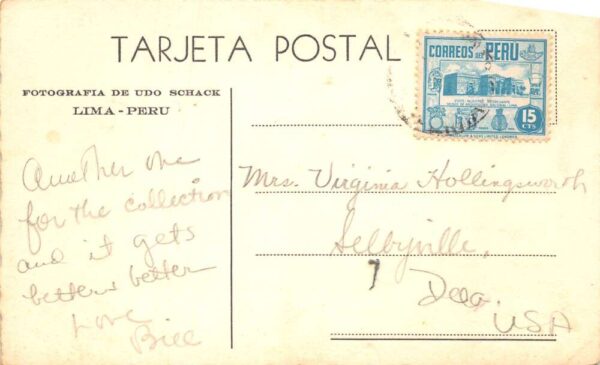 TARJETA POSTAL
FOTOGRAFIA DE UDO SCHACK
LIMA - PERU
CORREOS DEL PERU
15
CTS
Another one
for the collection
and it gets
better & better
Love
Bill
Mrs. Virginia Hollingsworth
Selbyville,
7
Dela.
USA